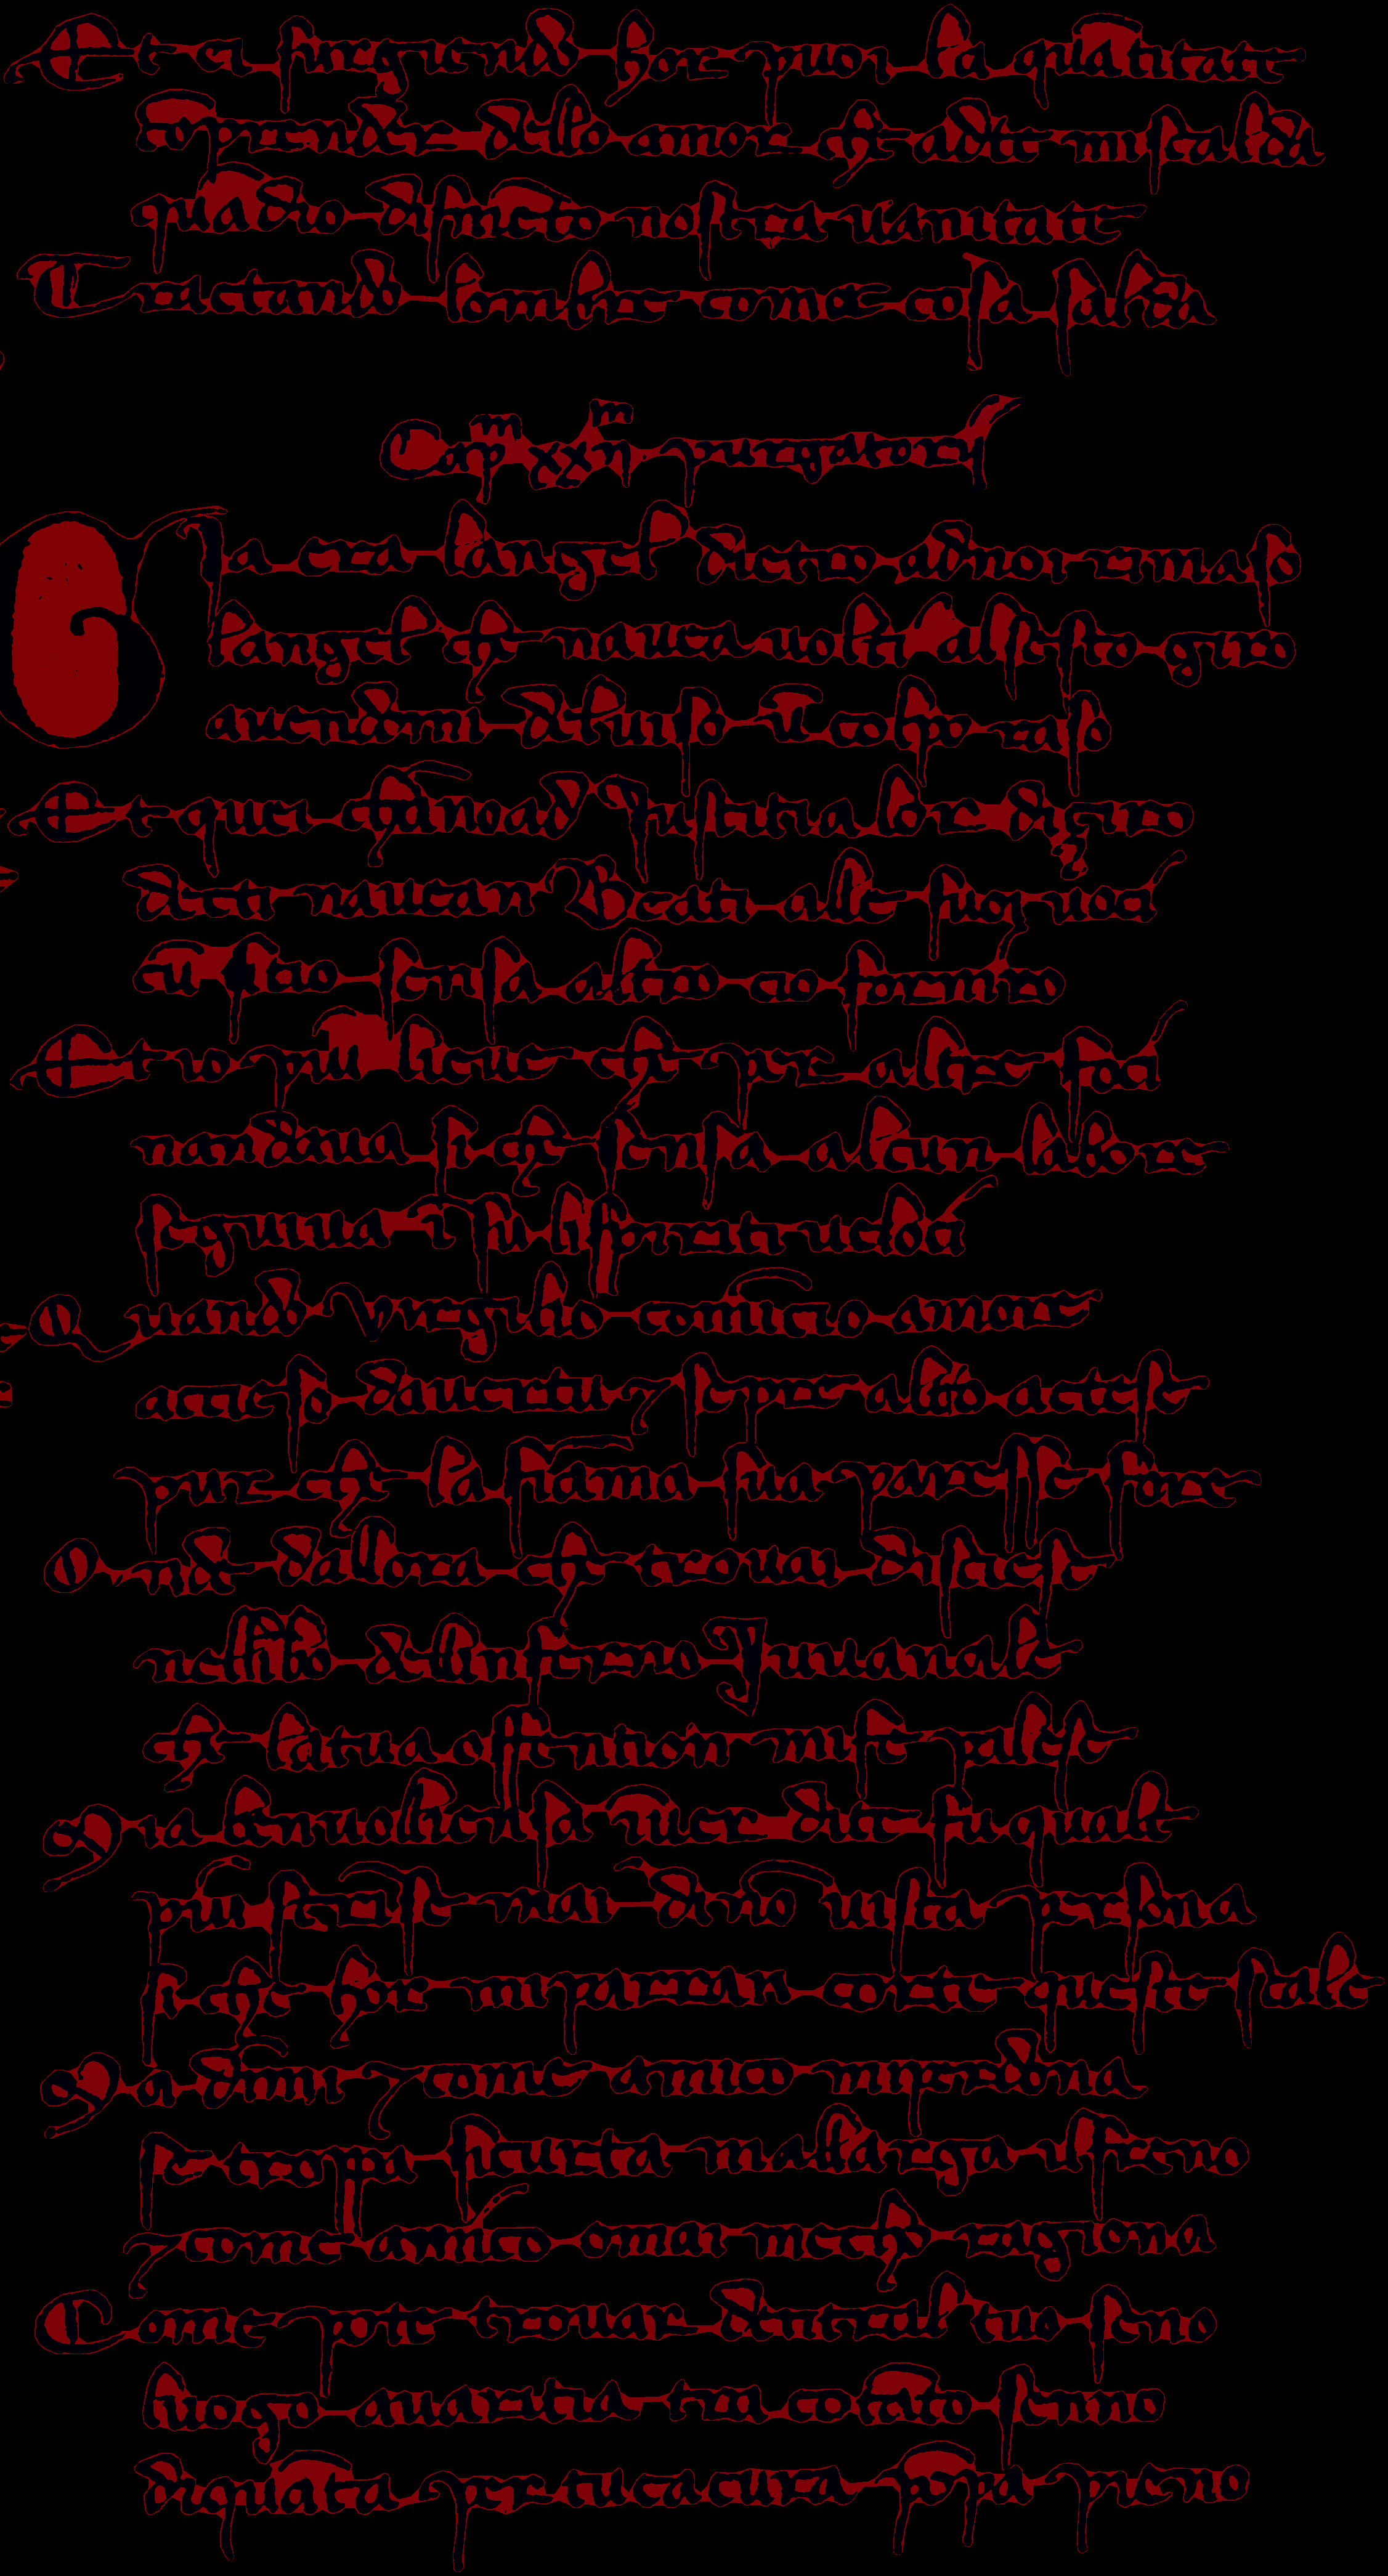 Et ei surgiendo hor puoi la quātitate
cōprender dello amor che adte miscalda
quādio dismēto nostra uanitate
Tractando lombre comæ cosa salda
Capᵐ xxijᵐ purgatorij
Gia era langel dietro adnoi rimaso
langel che nauea uolti alsesto giro
auendomi deluiso ū colpo raso
Et quei chāno ad Justitia lor digiro
decti nauean Beati alle suoi uoci
cū scio sensa altro cio forniro
Et io piu lieue che per altre foci
nandaua si che sensa alcun labore
seguiua ī su lispiriti ueloci
Quando virgilio comīcio amore
acceso dauertu ⁊ sepre altro accese
pur che la fiāma sua paresse fore
Onde dallora che trouai discese
nellībo dellinferno Juuanale
che latua affention mife palese
Mia beniuoliensa īuer dite fu quale
piu strīse mai dinō uista persona
si che hor miparran corte queste scale
Ma dīmi ⁊ come amico miperdona
se troppa sicurta mallarga ilfreno
⁊ come amico omai mecho ragiona
Come pote trouar dentral tuo seno
luogo auaritia tra cotāto senno
diquāta per tuea cura ppā pieno